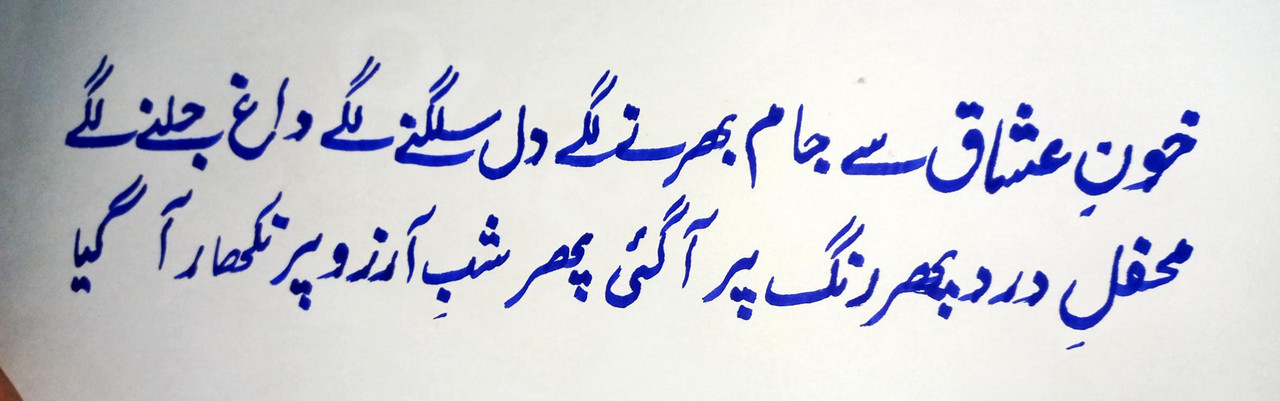 خونِ عشاق سے جام بھرنے لگے دل سلگنے لگے داغ جلنے لگے
محفلِ درد پھر رنگ پر آ گئی پھر شبِ آرزو پر نکھار آ گیا